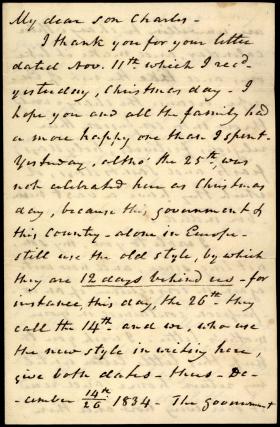 My dear son Charles -
I thank you for your letter
dated Nov. 11th. which I recd.
yesterday, Christmas day - I
hope you and all the family had
a more happy one than I spent.
Yesterday, altho' the 25th, was
not celebrated here as Christmas
day, because this government of
this country - alone in Europe -
still use the old style, by which
they are 12 days behind us - for
instance, this day, the 26th they
call the 14th - and we, who use
the new style in writing here,
give both dates - thus - De-
-cember 14th/26 1834 - The government